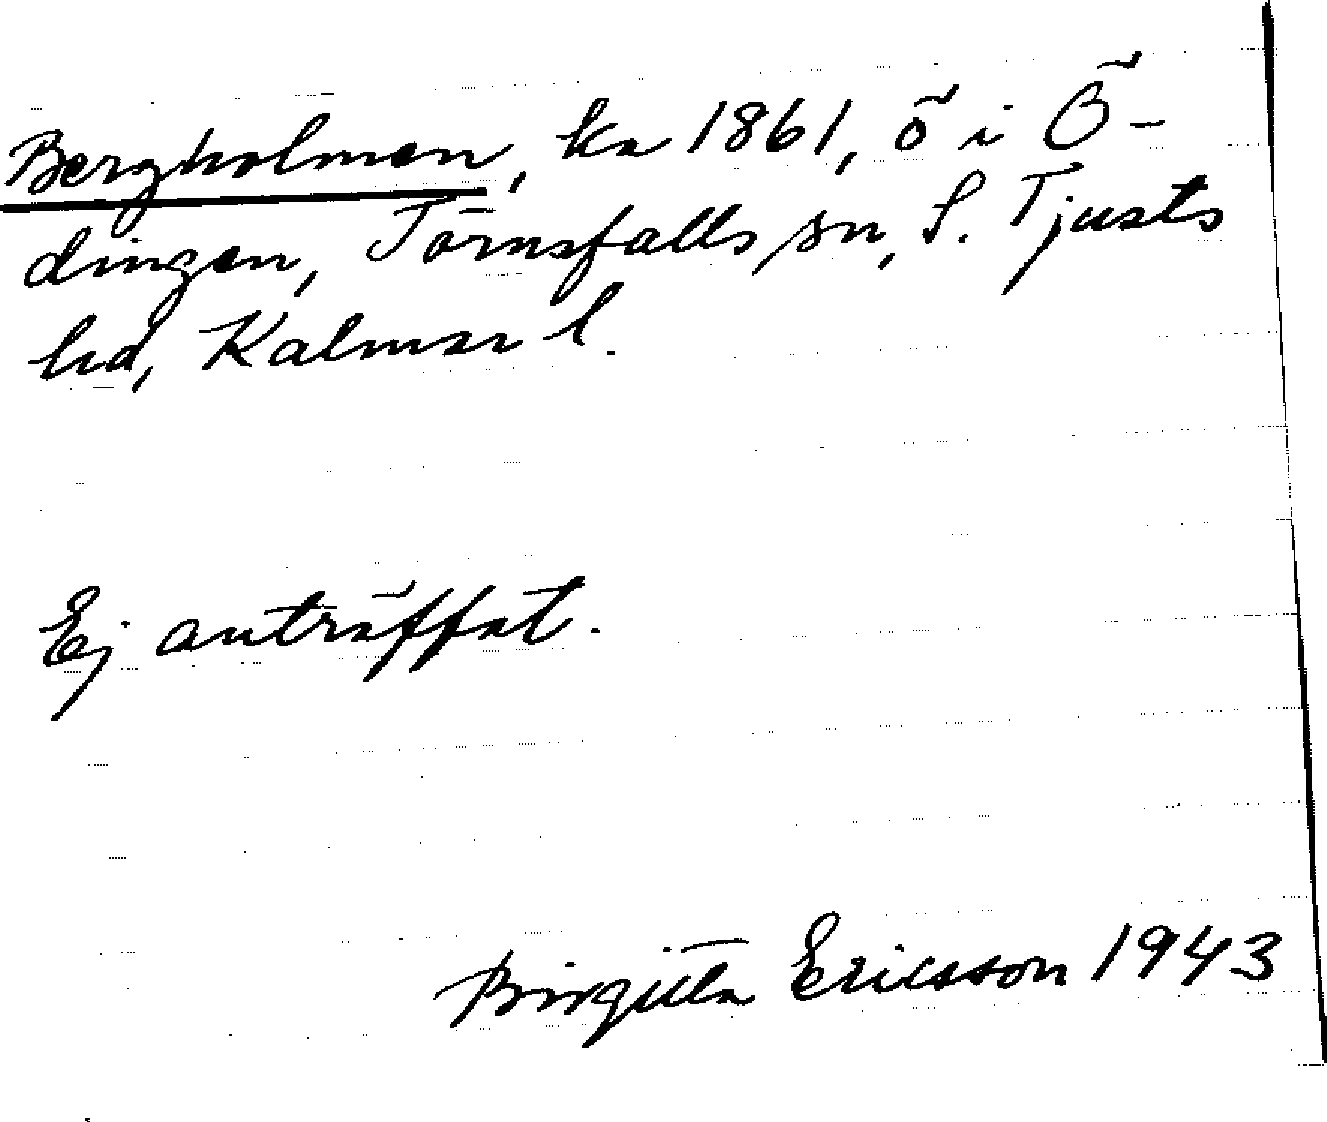 Bergholmen, ka 1861, ö i Ö-
dingen, Törnsfalls sn, S. Tjusts
hd, Kalmar l.
Ej anträffat.
Birgitta Ericsson 1943